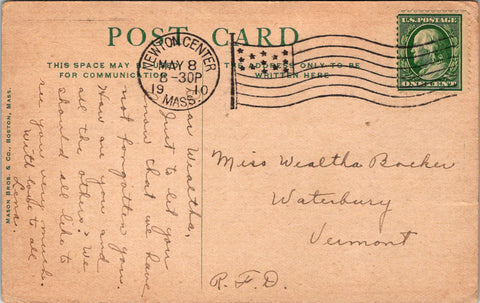 POST CARD
THIS SPACE MAY BE U
FOR COMMUNICATION
THE ADDRESS ONLY TO BE
WRITTEN HERE
NEWTON CENTER
MAY 8
8-30P
1910
MASS.
U.S. POSTAGE
ONE CENT
MASON BROS. & CO., BOSTON, MASS.
Dear Wealtha,
Just to let you
know that we have
not forgotten you.
How are you and
all the others? We
should all like to
see you very much.
With love to all
Lena.
Miss Wealtha
Waterbury
Vermont
R.F.D.